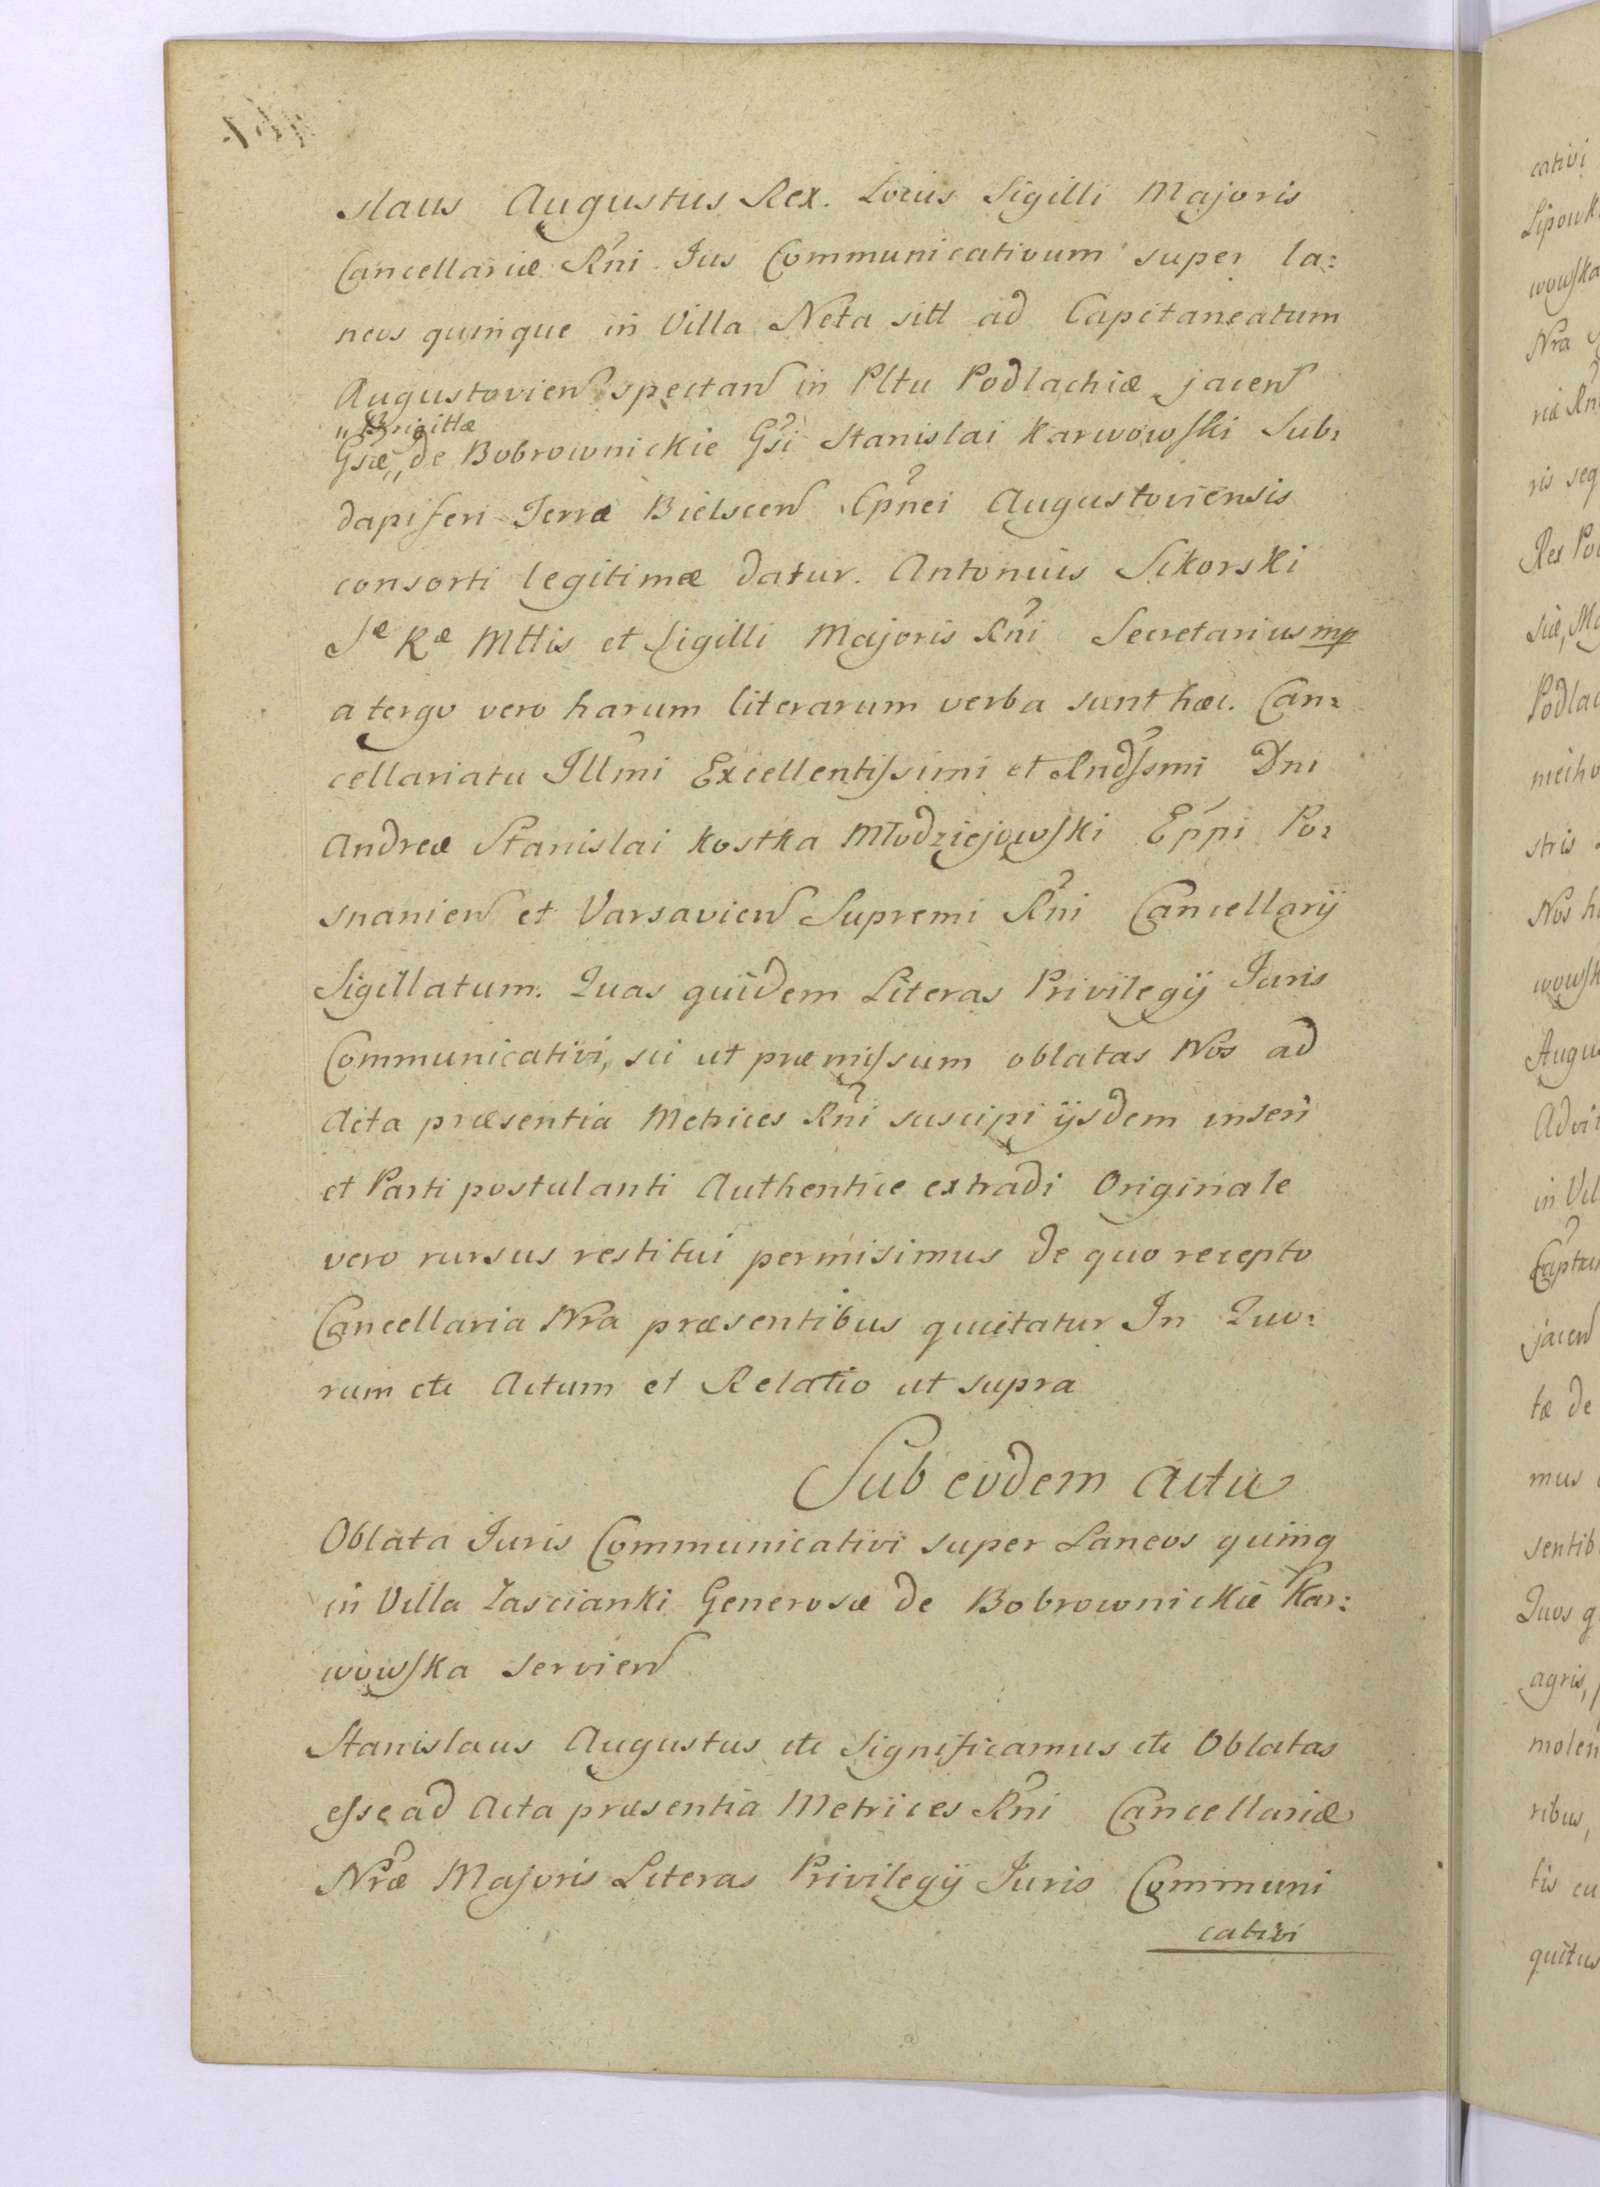 slaus Augustus Rex. Locus Sigilli Majoris
Cancellariæ Rni. Jus Communicativum super la:
neos quinque in Villa Neta sitt ad Capitaneatum
Augustovien spectan in Pltu Podlachiæ jacen
„Brigittæ
Gsæ„ de Bobrownickie Gsi Stanislai Karwowski Sub:
dapiferi Terræ Bielscen Cpnei Augustoviensis
consorti legitimæ datur. Antonius Sikorski
Sæ Ræ Mttis et Sigilli Majoris Rni Secretarius mp
a tergo vero harum literarum verba sunt hæc. Can:
cellariatu Illmi Excellentissimi et Rndssmi Dni
Andreæ Stanislai Kostka Młodziejowski Eppi Po:
snanien et Varsavien Supremi Rni Cancellarij
Sigillatum. Quas quidem Literas Privilegij Juris
Communicativi, sic ut præmissum oblatas Nos ad
Acta præsentia Metrices Rni suscipi ijsdem inseri
et Parti postulanti Authentice extradi Originale
vero rursus restitui permisimus de quo recepto
Cancellaria Nra præsentibus quietatur In Quo:
rum etc Actum et Relatio ut supra
Sub eodem Actu
Oblata Juris Communicativi super Laneos quinq
in Villa Zascianki Generosæ de Bobrownickie Kar:
wowska servien
Stanislaus Augustus etc Significamus etc Oblatas
esse ad Acta præsentia Metrices Rni Cancellariæ
Nræ Majoris Literas Privilegij Juris Communi
cativi
cativi
Lipowk
wowska
Nra
riæ Rn
ris seq
Rex Po
siæ, Ma
Podlac
stris
Nos h
wowsk
Augus
Advi
in Vil
jacen
tæ de
mus
sentib
Quos q
agris,
molen
ribus,
tis cu
quitus